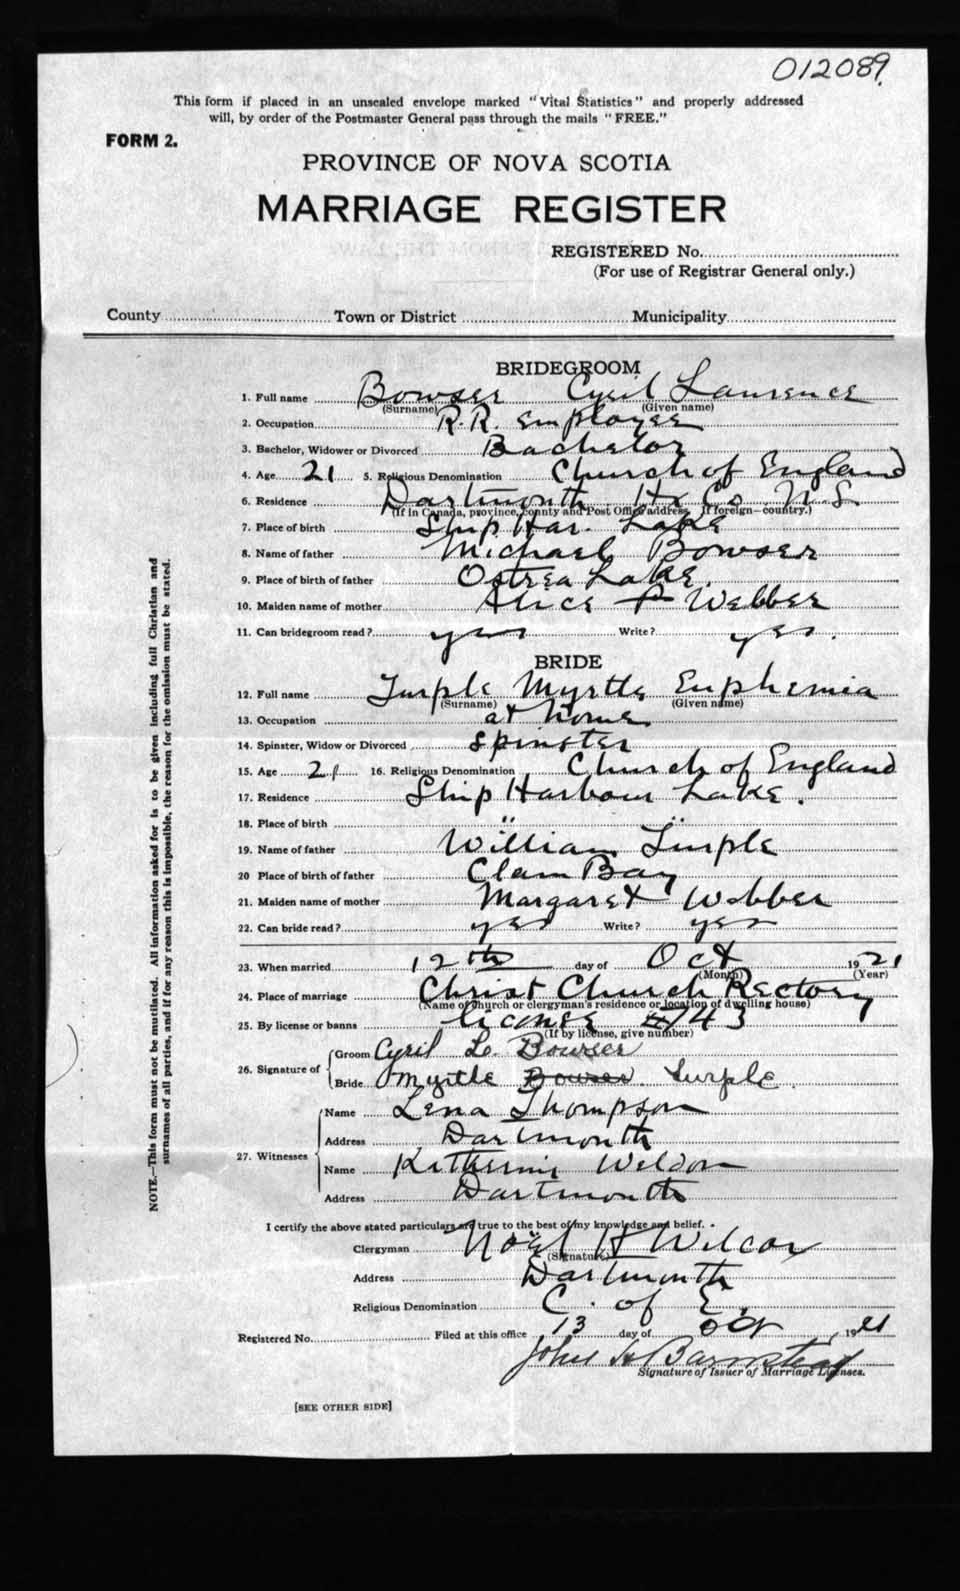 012089
This form if placed in an unsealed envelope marked "Vital Statistics" and properly addressed
will, by order of the Postmaster General pass through the mails "FREE."
FORM 2.
PROVINCE OF NOVA SCOTIA
MARRIAGE REGISTER
REGISTERED No.
(For use of Registrar General only.)
County Town or District Municipality
BRIDEGROOM
1. Full name Bowser Cyril Laurence
(Surname) (Given name)
2. Occupation R.R. Employee
3. Bachelor, Widower or Divorced Bachelor
4. Age 21 5. Religious Denomination Church of England
6. Residence Dartmouth Hx Co N.S.
(If in Canada, province, county and Post Office address. If foreign—country.)
7. Place of birth Ship Har. Lake
8. Name of father Michael Bowser
9. Place of birth of father Ostrea Lake.
10. Maiden name of mother Alice Webber
11. Can bridegroom read? yes Write? yes.
BRIDE
12. Full name Turple Myrtle Euphemia
(Surname) (Given name)
13. Occupation at home
14. Spinster, Widow or Divorced Spinster
15. Age 21 16. Religious Denomination Church of England
17. Residence Ship Harbour Lake.
18. Place of birth " "
19. Name of father William Turple
20 Place of birth of father Clam Bay
21. Maiden name of mother Margaret Webber
22. Can bride read? yes Write? yes
23. When married 12th day of Oct 1921
(Month) (Year)
24. Place of marriage Christ Church Rectory
(Name of church or clergyman's residence or location of dwelling house)
25. By license or banns license #743
(If by license, give number)
26. Signature of Groom Cyril L. Bowser
Bride Myrtle Bowser. Turple.
27. Witnesses
Name Lena Thompson
Address Dartmouth
Name Katherine Weldon
Address Dartmouth
I certify the above stated particulars are true to the best of my knowledge and belief.
Clergyman Noël H Wilcox
(Signature)
Address Dartmouth
Religious Denomination C. of E.
Registered No. Filed at this office 13 day of Oct, 1921
John H Barnstead
Signature of Issuer of Marriage Licenses.
[SEE OTHER SIDE]
NOTE.—This form must not be mutilated. All information asked for is to be given including full Christian and
surnames of all parties, and if for any reason this is impossible, the reason for the omission must be stated.